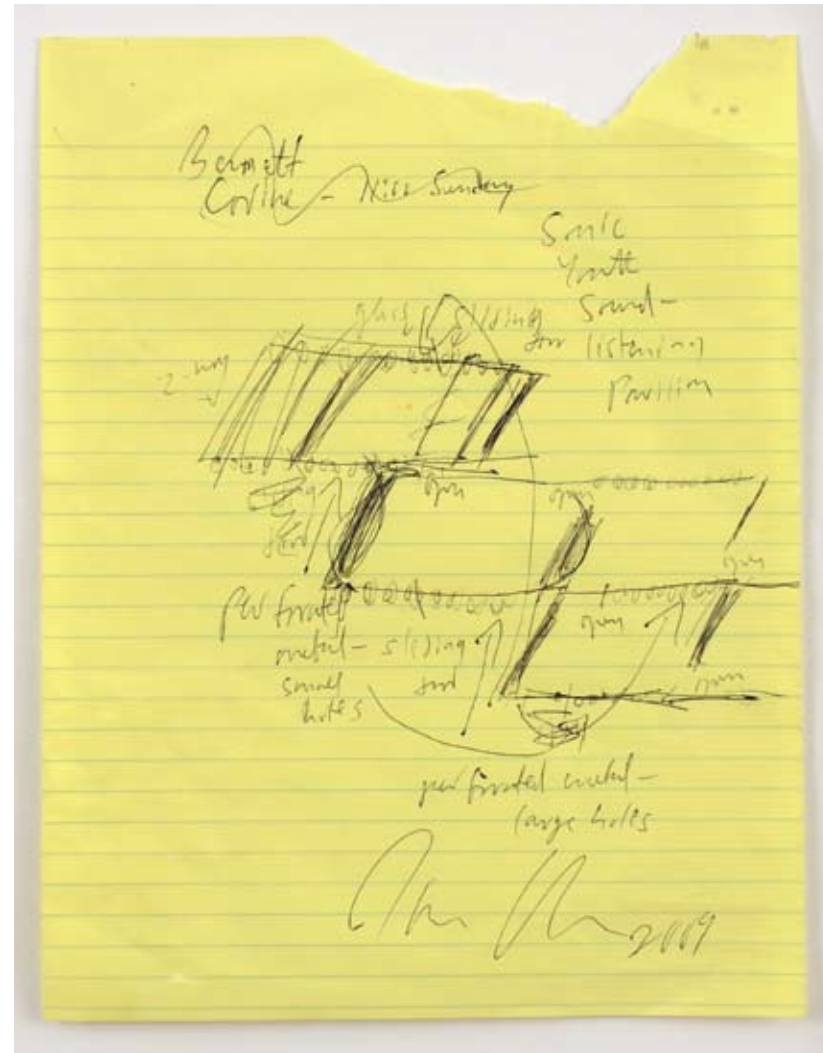 Corine - Sunday
Sonic
Youth
Sound-
listening
Pavilion
glass sliding
door
2-way
open
open
open
perforated
metal - sliding
small door
holes
open
open
perforated metal -
large holes
2009